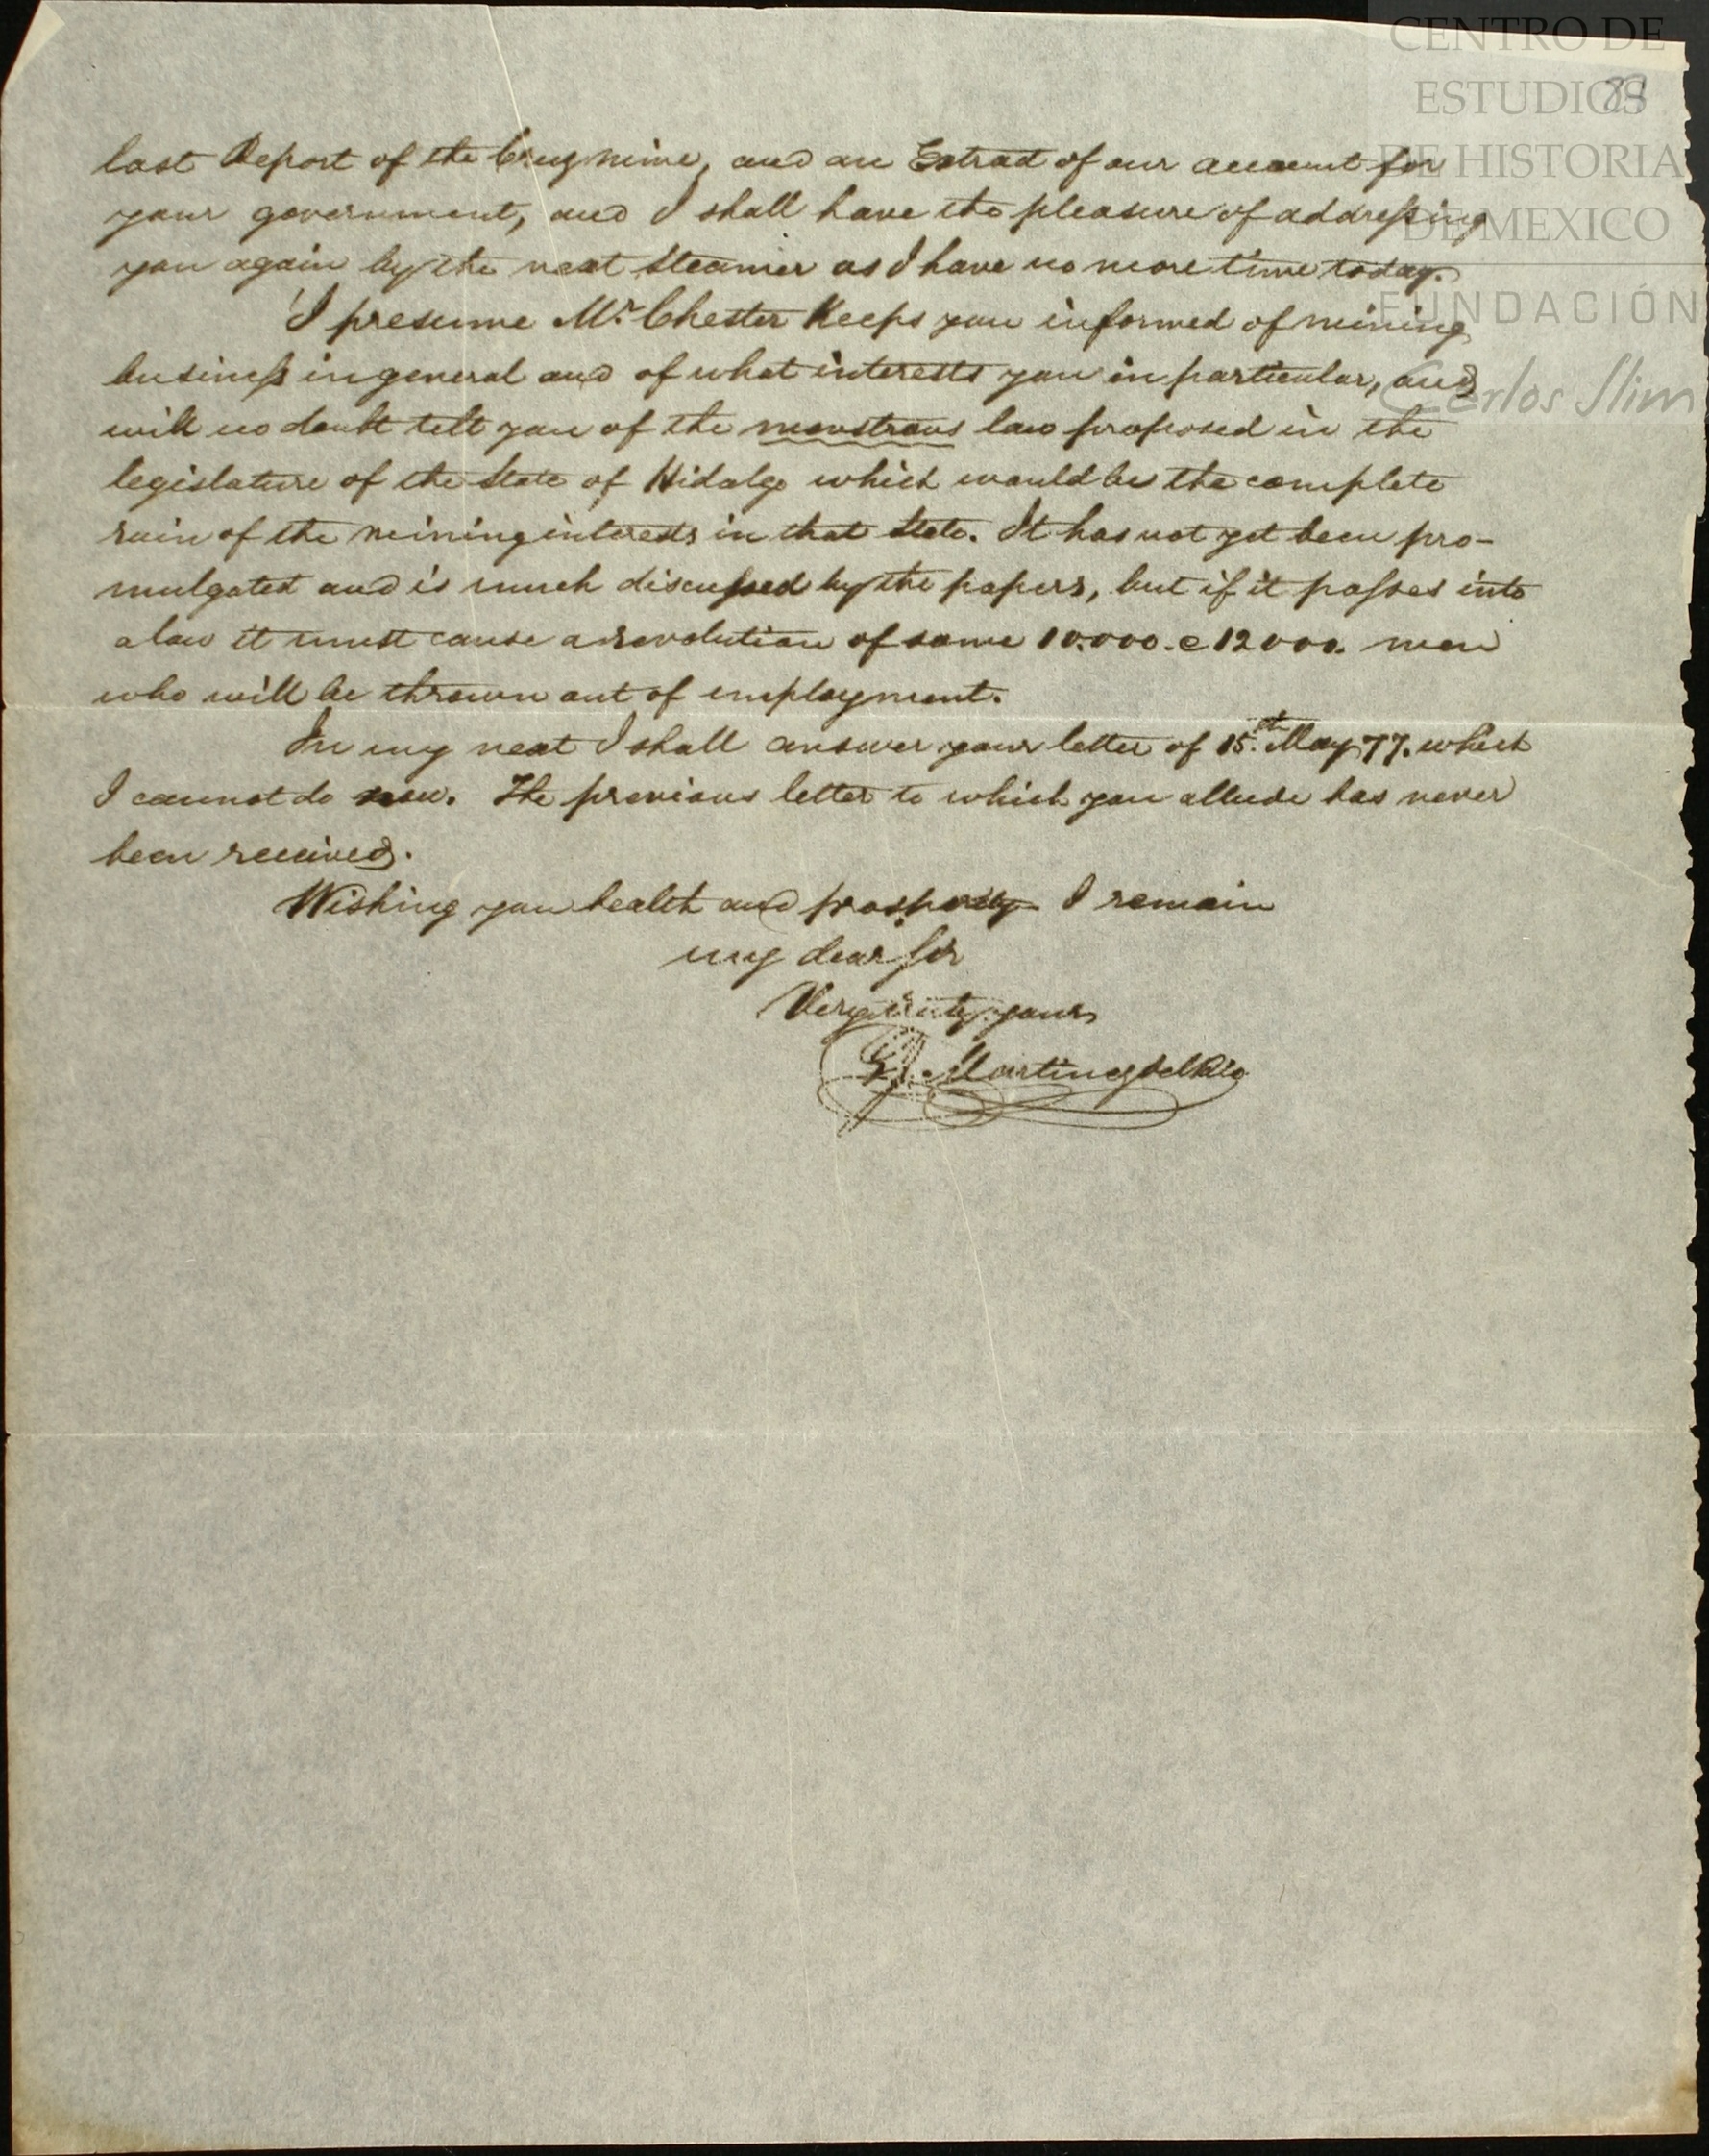 CENTRO DE
ESTUDIOS
DE HISTORIA
DE MEXICO
FUNDACIÓN
Carlos Slim
last Report of the Cruz mine, and an Extract of our account for
your government, and I shall have the pleasure of addressing
you again by the next steamer as I have no more time today.
I presume Mr. Chester Keeps you informed of mining
business in general and of what interests you in particular, and
will no doubt tell you of the monstrous law proposed in the
legislature of the State of Hidalgo which would be the complete
ruin of the mining interests in that State. It has not yet been pro-
mulgated and is much discussed by the papers, but if it passes into
a law it must cause a revolution of some 10.000. @ 12000. men
who will be thrown out of employment.
In my next I shall answer your letter of 15th. May 77. which
I cannot do now. The previous letter to which you allude has never
been received.
Wishing you health and prosperity I remain
my dear Sir
Very truly yours
Martinez del Rio